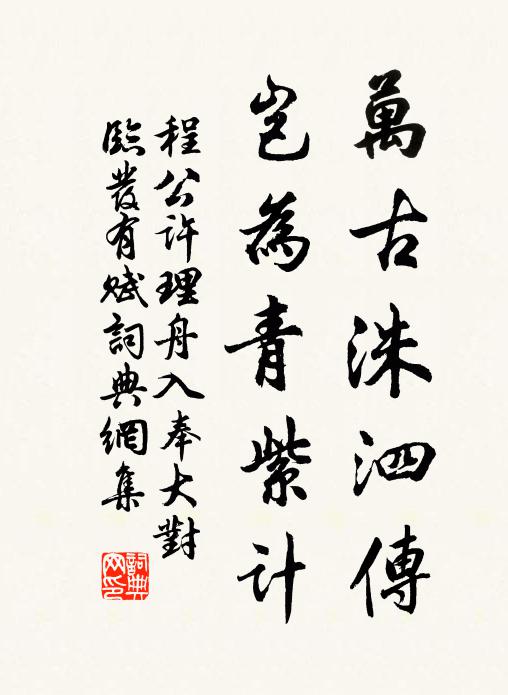 萬古洙泗傳
豈為青紫計
程公許理舟入奉大對
臨發有賦詞典網集
詞典網印